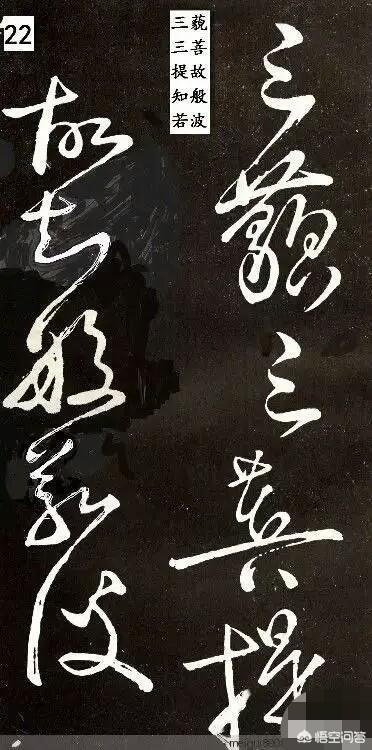 22
三藐
三菩
提故
知般
若波
三藐三菩提
故知般若波
悟空问答